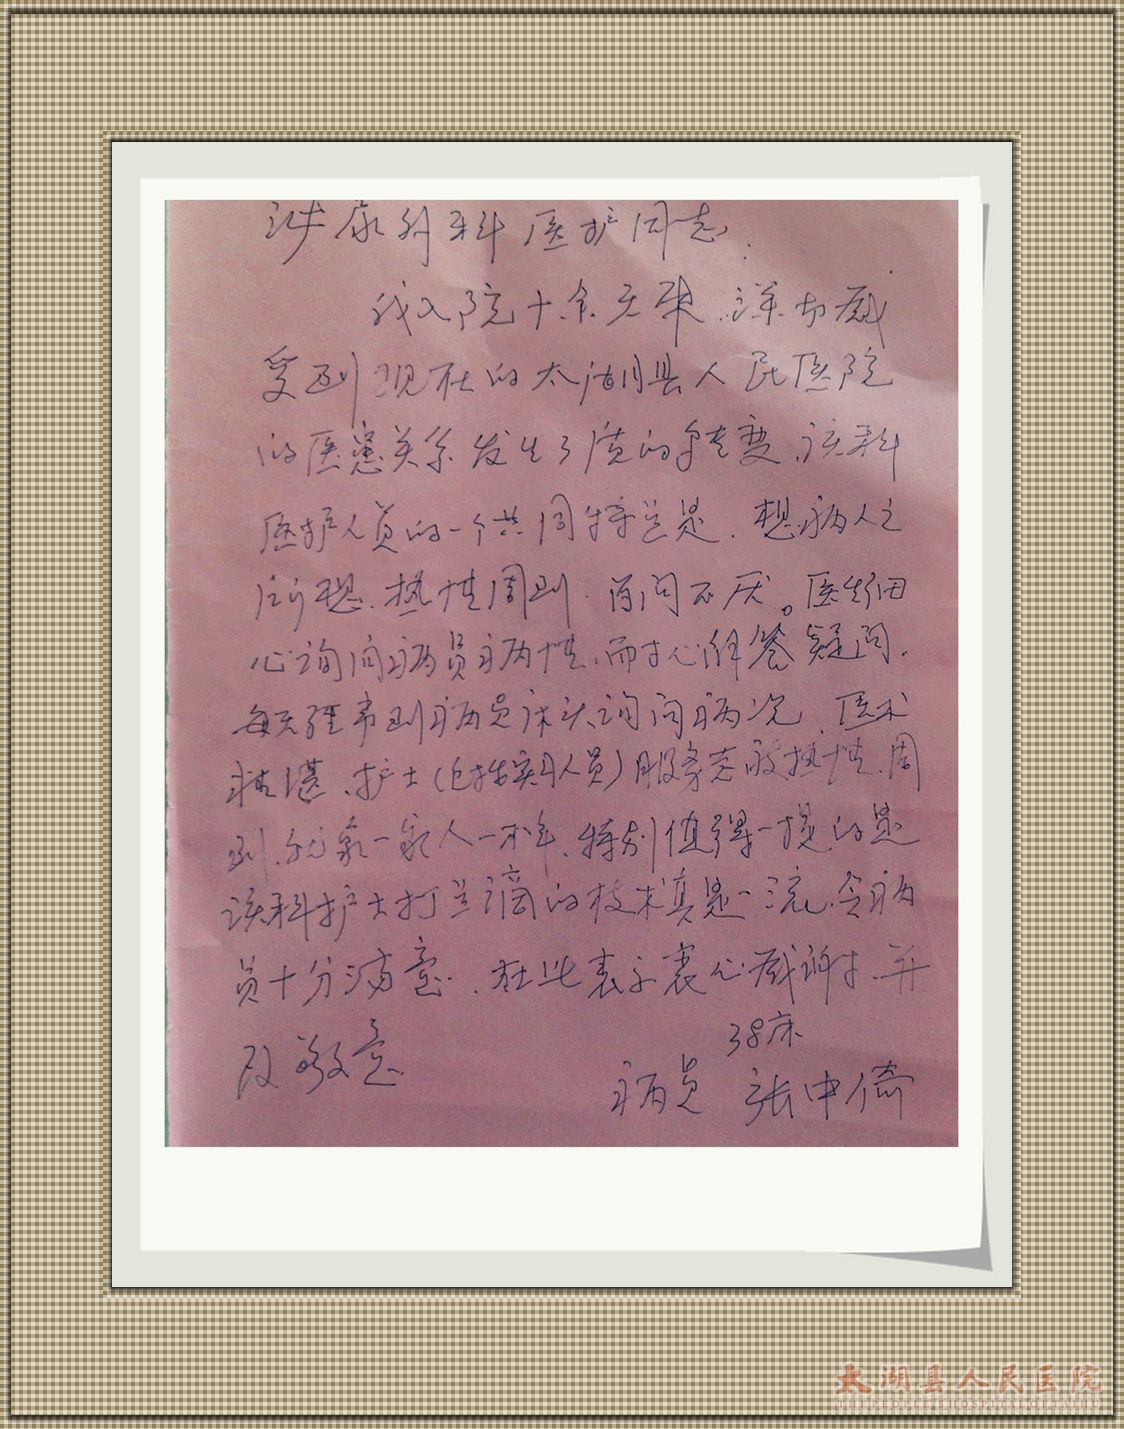 泌尿外科医护同志:
我入院十余天来,深切感
受到现在的太湖县人民医院
的医患关系发生了质的转变,该科
医护人员的一个共同特点是,想病人之
所想,热情周到,百问不厌。医生细
心询问病员病情,耐心解答疑问,
每天经常到病员床头询问病况 医术
精湛,护士(包括实习人员)服务态度热情、周
到,就象一家人一样,特别值得一提的是
该科护士打点滴的技术真是一流,令病
员十分满意,在此表示衷心感谢,并
致敬意
38床
病员 张中倚
太湖县人民医院
THE PEOPLE'S HOSPITAL OF TAIHU